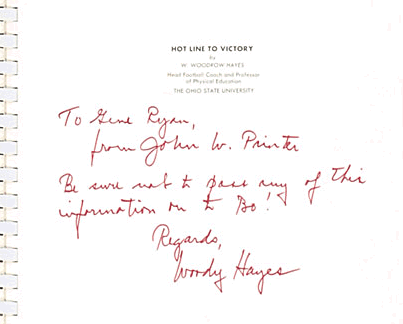 HOT LINE TO VICTORY
by
W. WOODROW HAYES
Head Football Coach and Professor
of Physical Education
THE OHIO STATE UNIVERSITY
To Gene Ryan,
from John W. Printer
Be sure not to pass any of this
information on to Bo!
Regards,
Woody Hayes